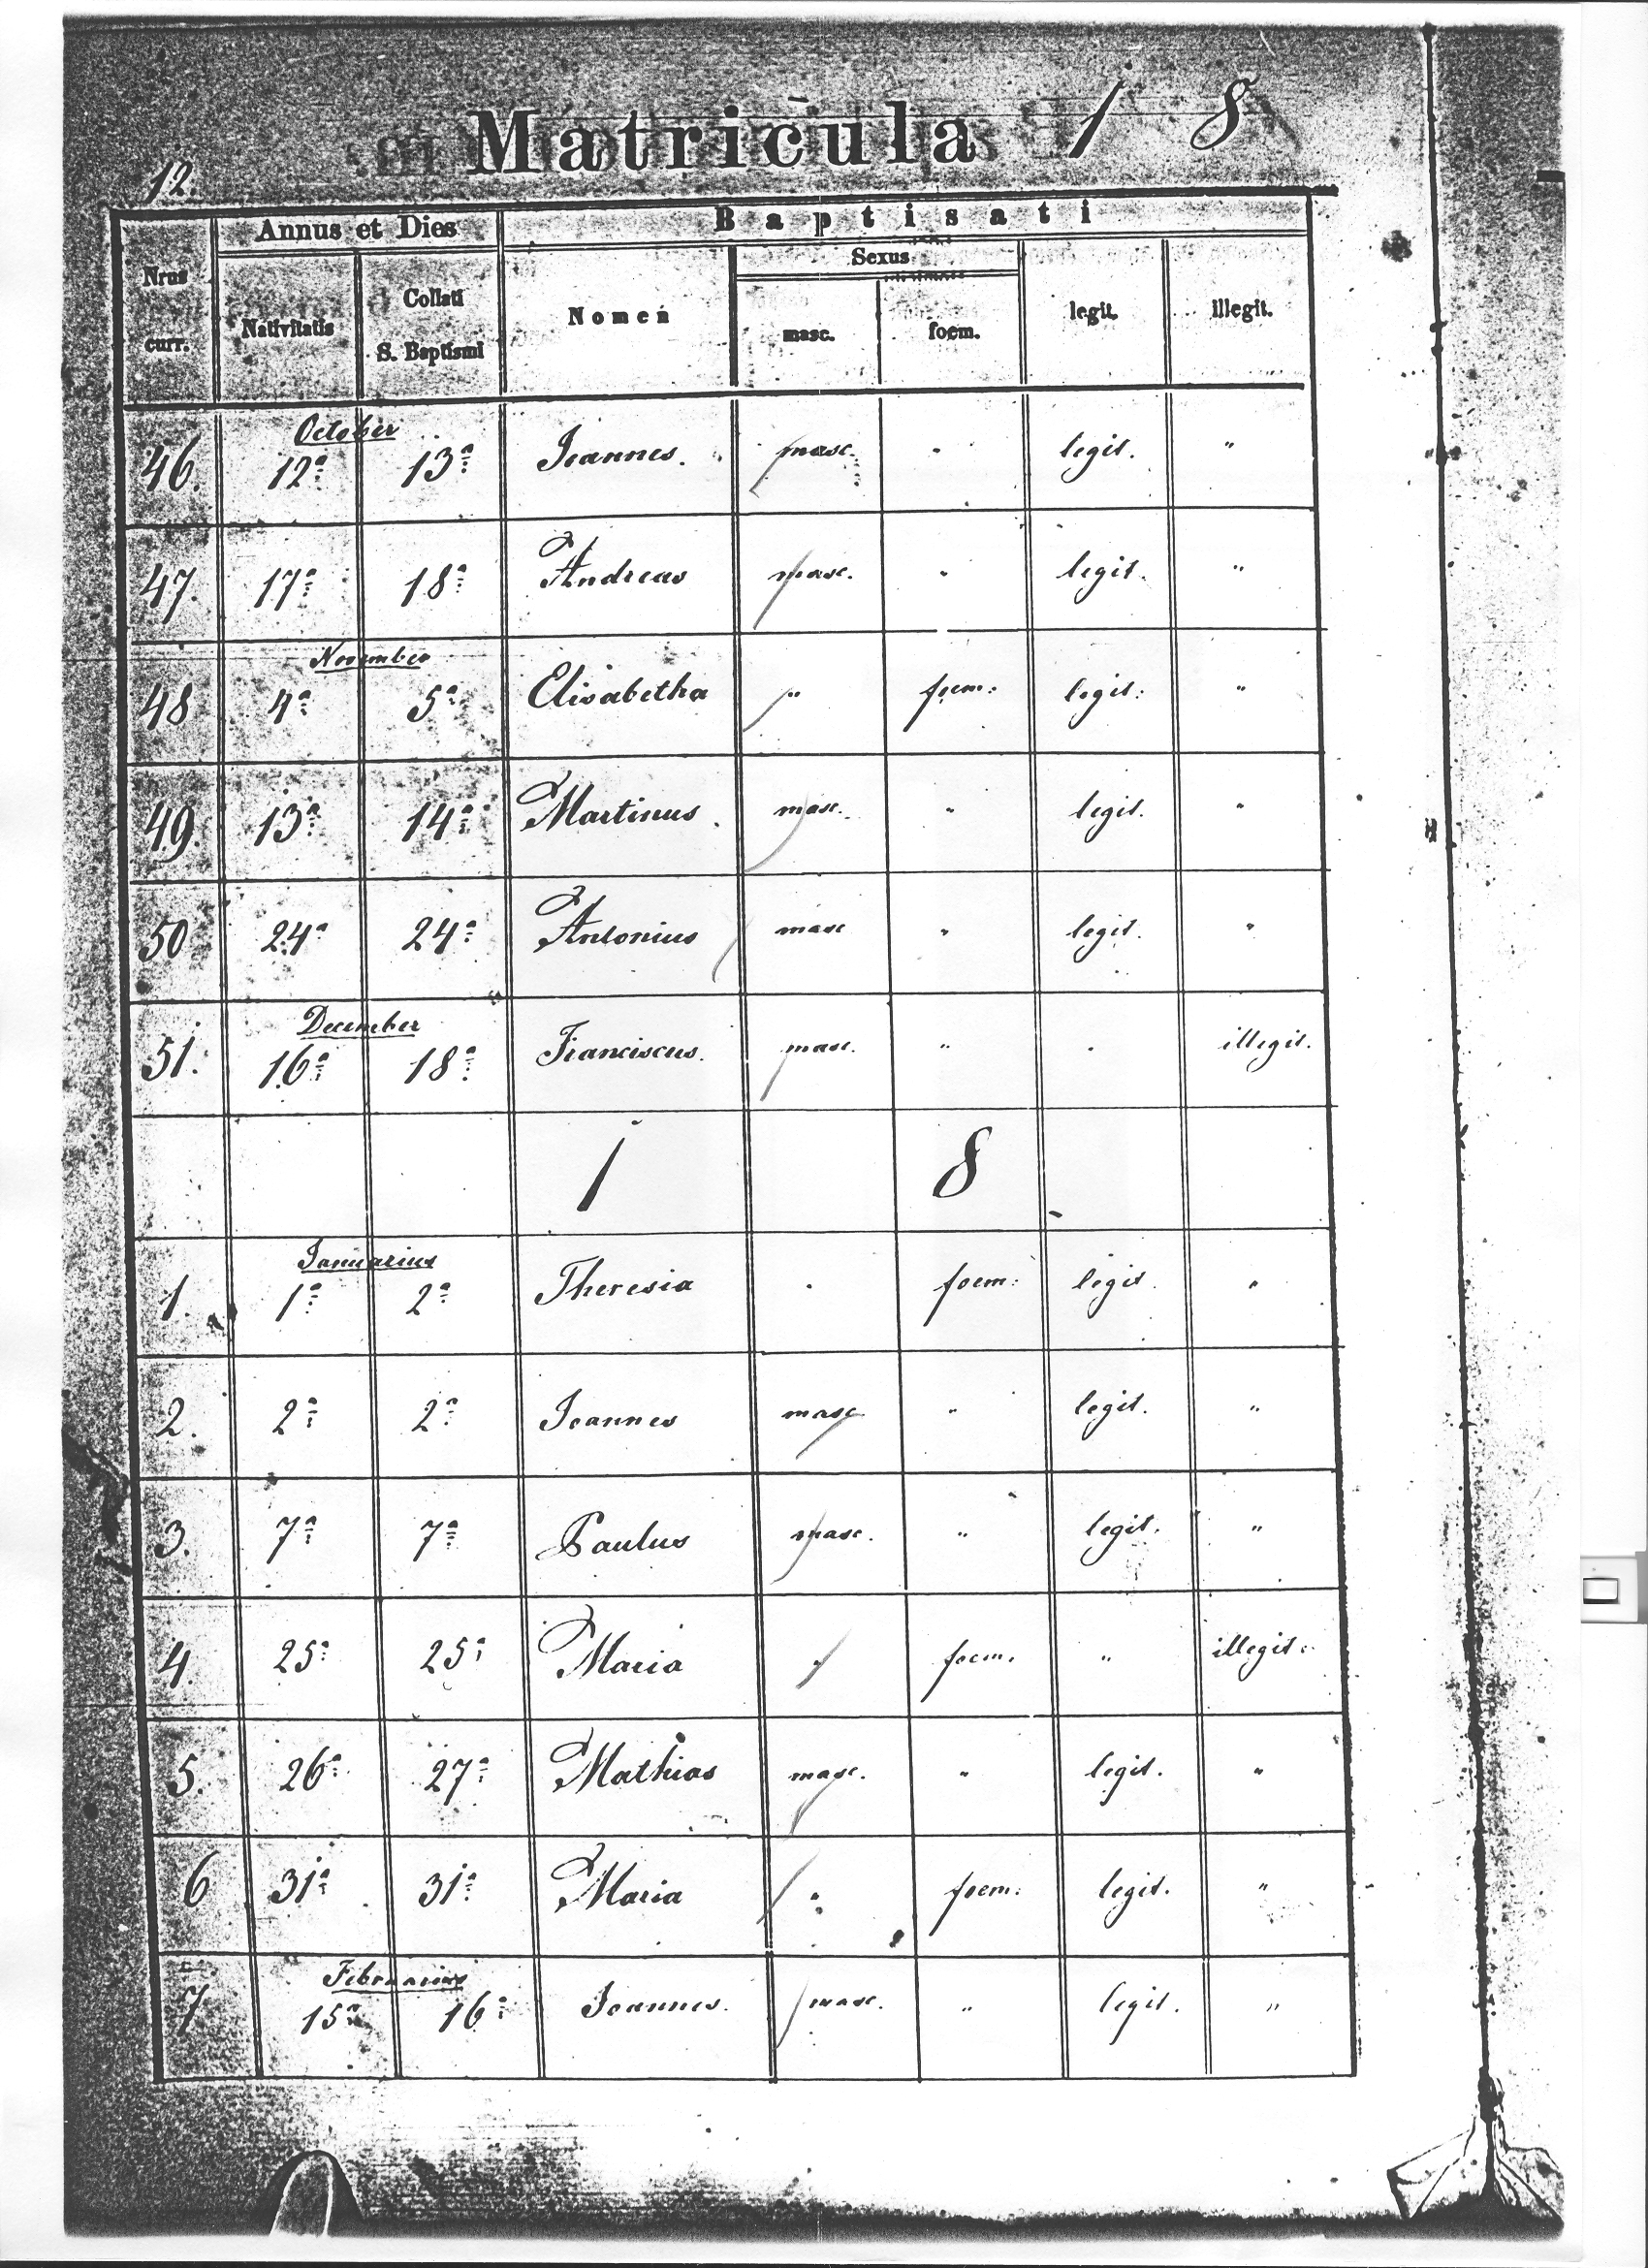 Matricula 1 8
12.
Annus et Dies Baptisati
Nrus curr. Nativitatis Collati S. Baptismi Nomen Sexus masc. foem. legit. illegit.
October
46. 12a 13a Joannes. masc. " legit. "
47. 17a 18a Andreas masc. " legit. "
November
48 4a 5a Elisabetha " foem: legit: "
49. 13a 14a Martinus masc. " legit. "
50 24a 24a Antonius masc " legit. "
December
51. 16a 18a Franciscus. masc. " " illegit.
1 8
Januarius
1. 1a 2a Theresia " foem: legit. "
2. 2a 2a Joannes masc " legit. "
3. 7a 7a Paulus masc. " legit. "
4. 25a 25a Maria " foem. " illegit.
5. 26a 27a Mathias masc. " legit. "
6 31a 31a Maria " foem: legit. "
Februarius
7 15a 16a Joannes. masc. " legit. "